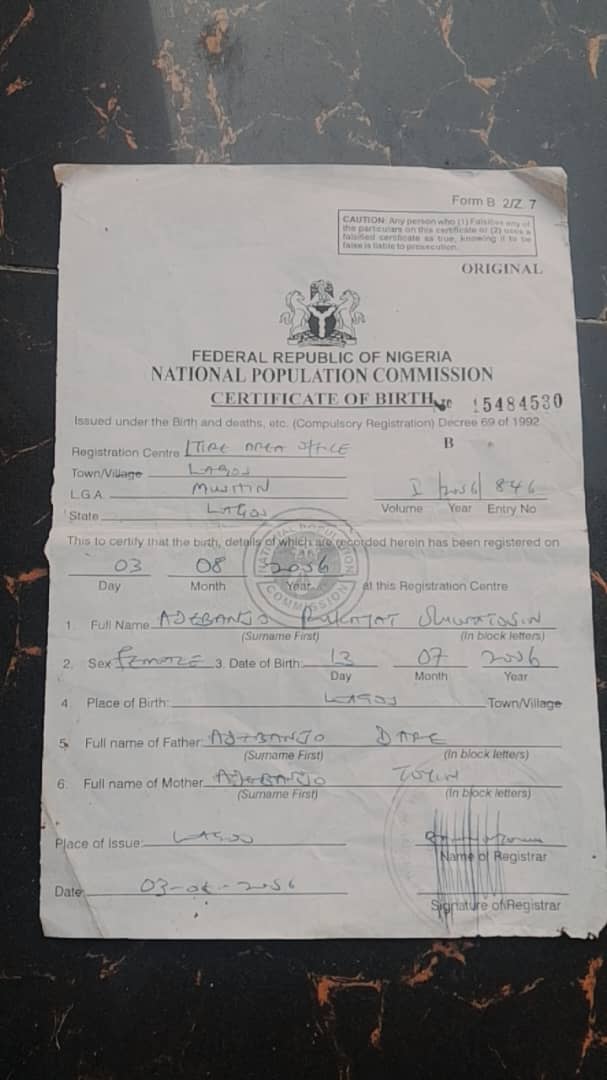 Form B 2/Z 7
CAUTION: Any person who (1) Falsifies any of
the particulars on this certificate or (2) uses a
falsified certificate as true, knowing it to be
false is liable to prosecution.
ORIGINAL
FEDERAL REPUBLIC OF NIGERIA
NATIONAL POPULATION COMMISSION
CERTIFICATE OF BIRTH 15484530
Issued under the Birth and deaths, etc. (Compulsory Registration) Decree 69 of 1992
B
Registration Centre ITIRE AREA OFFICE
Town/Village LAGOS
L.G.A. MUSHIN
I 2006 846
Volume Year Entry No
State LAGOS
This to certify that the birth, details of which are recorded herein has been registered on
03 08 2006
Day Month Year at this Registration Centre
NATIONAL POPULATION COMMISSION
1. Full Name ADEBANJO
(Surname First) (In block letters)
2. Sex FEMALE 3. Date of Birth: 13 07 2006
Day Month Year
4. Place of Birth: LAGOS Town/Village
5. Full name of Father ADEBANJO DARE
(Surname First) (In block letters)
6. Full name of Mother ADEBANJO TOYIN
(Surname First) (In block letters)
Place of Issue: LAGOS
Name of Registrar
Date 03-08-2006
Signature of Registrar